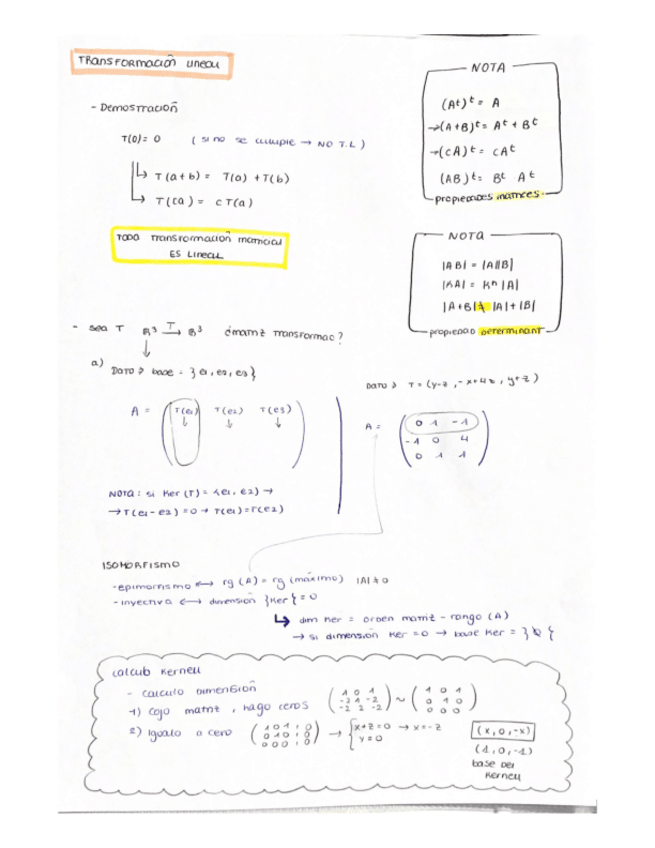 TRANSFORMACIÓN LINEAL
- DEMOSTRACIÓN
T(0) = 0 ( si no se cumple → NO T.L )
↳ T(a+b) = T(a) + T(b)
↳ T(ca) = c T(a)
TODA TRANSFORMACIÓN MATRICIAL
ES LINEAL
NOTA
(Aᵗ)ᵗ = A
→(A+B)ᵗ = Aᵗ + Bᵗ
→(cA)ᵗ = cAᵗ
(AB)ᵗ = Bᵗ Aᵗ
PROPIEDADES MATRICES
NOTA
|AB| = |A||B|
|KA| = Kⁿ |A|
|A+B| ≠ |A|+|B|
PROPIEDAD DETERMINANT
- sea T ℝ³ T→ ℝ³ ¿matriz transformac?
a)
DATO → base = }e1, e2, e3{
A = ( T(e1) T(e2) T(e3) )
NOTA: si Ker(T) = <e1, e2> →
→ T(e1 - e2) = 0 → T(e1) = T(e2)
DATO → T = (y-z, -x+4z, y+z)
0 1 -1
A = -1 0 4
0 1 1
ISOMORFISMO
- epimorfismo ↔ rg (A) = rg (máximo) |A| ≠ 0
- inyectiva ↔ dimensión }Ker{ = 0
↳ dim Ker = orden matriz - rango (A)
→ si dimensión Ker = 0 → base Ker = }0{
Calculo Kernell
- CALCULO DIMENSIÓN
1) Cojo matriz, hago ceros (1 0 1 / -2 1 -2 / -2 2 -2) ~ (1 0 1 / 0 1 0 / 0 0 0)
2) Igualo a cero (1 0 1 | 0 / 0 1 0 | 0 / 0 0 0 | 0) → { x+z=0 → x=-z
y=0
(x, 0, -x)
(1, 0, -1)
base del
Kernell